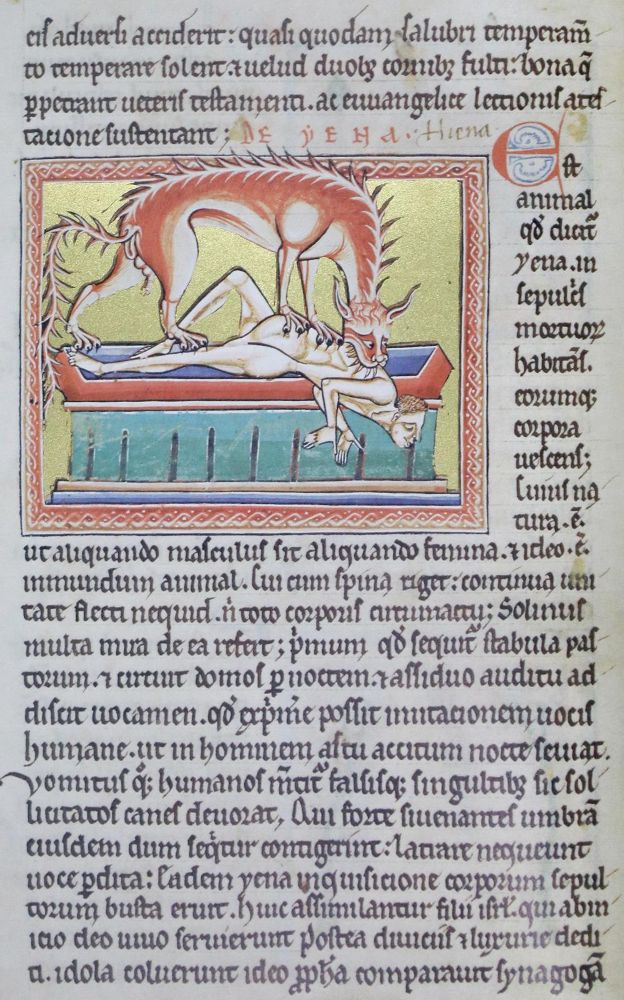 eis adversi acciderit: quasi quodam salubri temperam̄
to temperare solent. ⁊ uelud duobꝫ cornibꝫ fulti: bona q̄
ꝑpetrant ueteris testamenti. ac euuangelice lectionis ates
tacione sustentant;
DE YENA. Hiena.
Est
animal
qd̄ dicit̄
yena. in
sepulc̄s
mortuoꝝ
habitās.
eorumqꝫ
corpora
uescens;
Cuius na
tura. ē.
ut aliquando masculus sit aliquando femina. ⁊ ideo. ē.
inmundum animal. Cui cum spina riget: continua uni
tate flecti nequid. n̄ toto corporis circumactu; Solinus
multa mira de ea refert; p̄mum qd̄ sequit̄ stabula pas
torum. ⁊ circuit domos ꝑ noctem. ⁊ assiduo auditu ad
discit uocamen. qd̄ exp̄me possit imitacionem uocis
humane. ut in hominem astu accitum nocte seuiat.
Vomitus qꝫ humanos m̄tit̄ falsisqꝫ singultibꝫ sic sol
licitatos canes deuorat, Qui forte si uenantes umbrā
eiusdem dum seq̄tur contigerint: latrare nequeunt
uoce ꝑdita: Eadem yena inquisicione corporum sepul
torum busta eruit. Huic assimilantur filii isrl̄. qui ab in
icio deo uiuo seruierunt Postea diuiciis ⁊ luxurie dedi
ti. idola coluerunt ideo ꝓph̄a comparauit synagogā